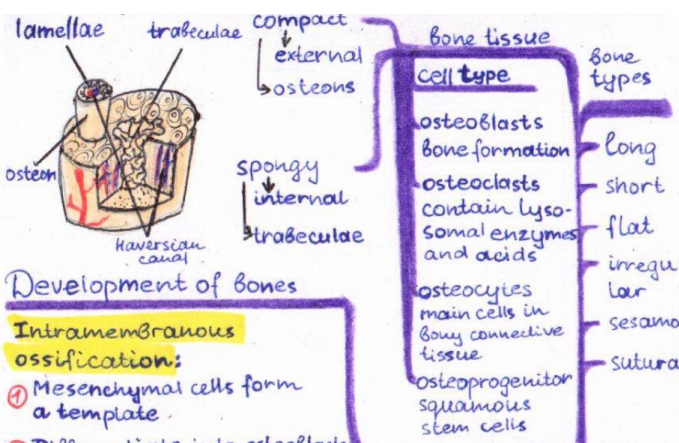 lamellae
trabeculae
osteon
Haversian
canal
compact
external
osteons
spongy
internal
trabeculae
Bone tissue
cell type
osteoblasts
bone formation
osteoclasts
contain lyso-
somal enzymes
and acids
osteocytes
main cells in
bony connective
tissue
osteoprogenitor
squamous
stem cells
Bone
types
long
short
flat
irregu
lar
sesamo
sutura
Development of bones
Intramembranous
ossification:
1 Mesenchymal cells form
a template.